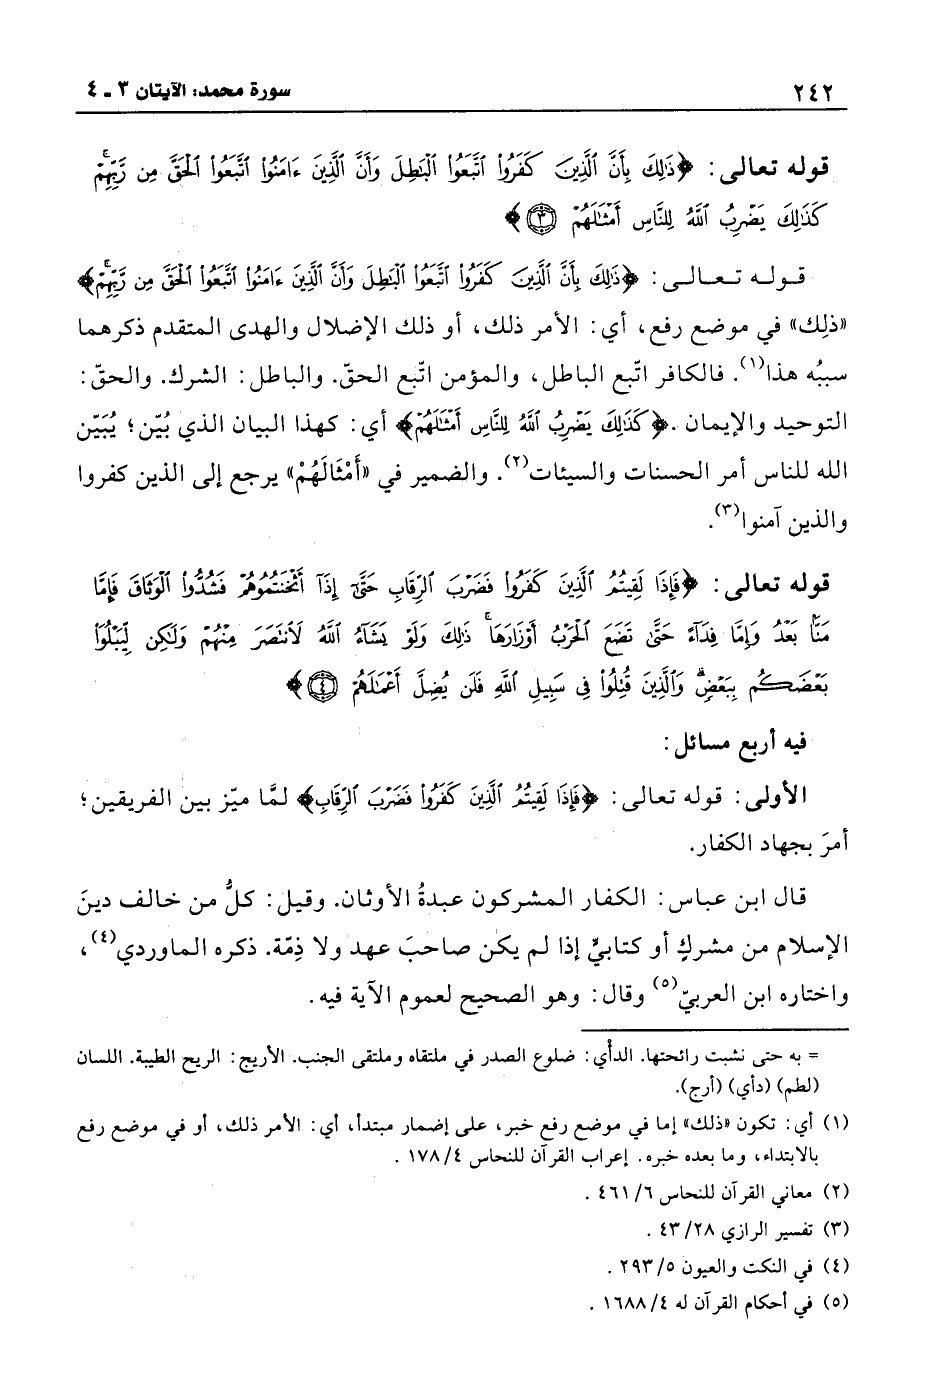 ٢٤٢ سورة محمد: الآيتان ٣ ـ ٤
قوله تعالى: ﴿ذَٰلِكَ بِأَنَّ ٱلَّذِينَ كَفَرُوا۟ ٱتَّبَعُوا۟ ٱلْبَـٰطِلَ وَأَنَّ ٱلَّذِينَ ءَامَنُوا۟ ٱتَّبَعُوا۟ ٱلْحَقَّ مِن رَّبِّهِمْ ۚ
كَذَٰلِكَ يَضْرِبُ ٱللَّهُ لِلنَّاسِ أَمْثَـٰلَهُمْ ٣﴾
قوله تعالى: ﴿ذَٰلِكَ بِأَنَّ ٱلَّذِينَ كَفَرُوا۟ ٱتَّبَعُوا۟ ٱلْبَـٰطِلَ وَأَنَّ ٱلَّذِينَ ءَامَنُوا۟ ٱتَّبَعُوا۟ ٱلْحَقَّ مِن رَّبِّهِمْ ۚ﴾
«ذَلِكَ» في موضع رفع، أي: الأمر ذلك، أو ذلك الإضلال والهدى المتقدم ذكرهما
سببُه هذا(١). فالكافر اتّبع الباطل، والمؤمن اتّبع الحقّ. والباطل: الشرك. والحقّ:
التوحيد والإيمان .﴿كَذَٰلِكَ يَضْرِبُ ٱللَّهُ لِلنَّاسِ أَمْثَـٰلَهُمْ﴾ أي: كهذا البيان الذي بُيّن؛ يُبَيّن
الله للناس أمر الحسنات والسيئات(٢). والضمير في «أَمْثَالَهُمْ» يرجع إلى الذين كفروا
والذين آمنوا(٣).
قوله تعالى: ﴿فَإِذَا لَقِيتُمُ ٱلَّذِينَ كَفَرُوا۟ فَضَرْبَ ٱلرِّقَابِ حَتَّىٰٓ إِذَآ أَثْخَنتُمُوهُمْ فَشُدُّوا۟ ٱلْوَثَاقَ فَإِمَّا
مَنًّۢا بَعْدُ وَإِمَّا فِدَآءً حَتَّىٰ تَضَعَ ٱلْحَرْبُ أَوْزَارَهَا ۚ ذَٰلِكَ وَلَوْ يَشَآءُ ٱللَّهُ لَٱنتَصَرَ مِنْهُمْ وَلَـٰكِن لِّيَبْلُوَا۟
بَعْضَكُم بِبَعْضٍ ۗ وَٱلَّذِينَ قُتِلُوا۟ فِى سَبِيلِ ٱللَّهِ فَلَن يُضِلَّ أَعْمَـٰلَهُمْ ٤﴾
فيه أربع مسائل:
الأولى: قوله تعالى: ﴿فَإِذَا لَقِيتُمُ ٱلَّذِينَ كَفَرُوا۟ فَضَرْبَ ٱلرِّقَابِ﴾ لمَّا ميّز بين الفريقين؛
أمرَ بجهاد الكفار.
قال ابن عباس: الكفار المشركون عبدةُ الأوثان. وقيل: كلُّ من خالف دينَ
الإسلام من مشركٍ أو كتابيٍّ إذا لم يكن صاحبَ عهد ولا ذِمّة. ذكره الماوردي(٤)،
واختاره ابن العربيّ(٥) وقال: وهو الصحيح لعموم الآية فيه.
= به حتى نشبت رائحتها. الدأْي: ضلوع الصدر في ملتقاه وملتقى الجنب. الأريج: الريح الطيبة. اللسان
(لطم) (دأي) (أرج).
(١) أي: تكون «ذلك» إما في موضع رفع خبر، على إضمار مبتدأ، أي: الأمر ذلك، أو في موضع رفع
بالابتداء، وما بعده خبره. إعراب القرآن للنحاس ٤/ ١٧٨ .
(٢) معاني القرآن للنحاس ٦/ ٤٦١ .
(٣) تفسير الرازي ٢٨/ ٤٣ .
(٤) في النكت والعيون ٥/ ٢٩٣ .
(٥) في أحكام القرآن له ٤/ ١٦٨٨ .